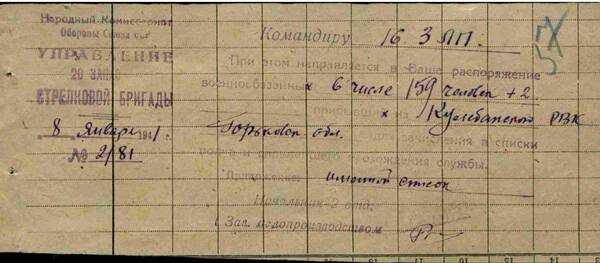 Народный Комиссариат
Обороны Союза ССР
УПРАВЛЕНИЕ
20 ЗАПАС
СТРЕЛКОВОЙ БРИГАДЫ
8 января 1941
№ 2/81
Командиру 16. ЗЛП.
При этом направляется в Ваше распоряжение
военнообязанных в числе 159 человек + 2
прибывших из Кулебакского РВК
Горьковск обл. для зачисления в списки
полка и дальнейшего прохождения службы.
Приложение: именной список
Начальник 2 отд.
Зав. делопроизводством